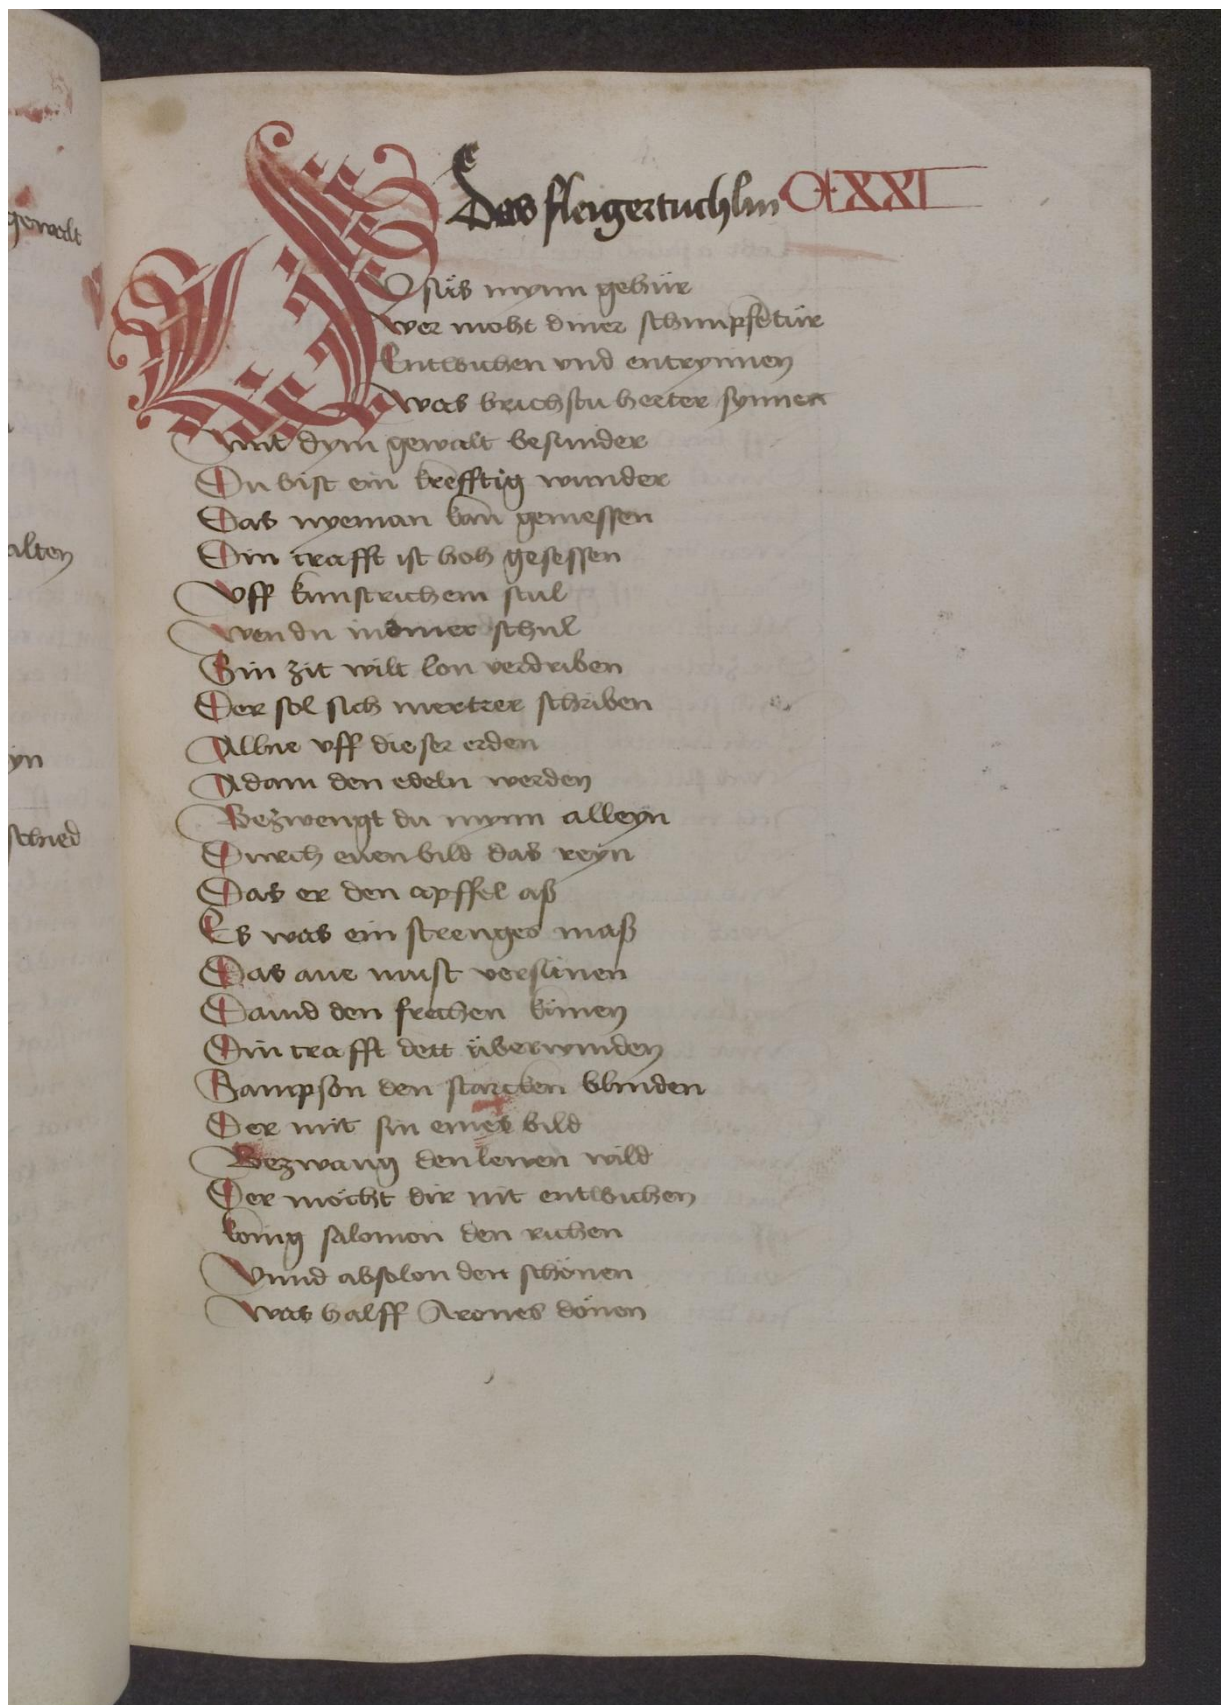 Das sleigertuchlin CLXXI
O süs mynn gehür
wer moht diner schimpfentür
Entwichen vnd entrynnen
was brichstu herter synnen
mit dym gewalt besunder
Du bist ein krefftig wunder
Das nyeman kan gemessen
Din crafft ist hoh gesessen
Vff kunstrichem stul
wen du in diner schul
Sin zit wilt lon verdriben
Der sol sich mertrer schriben
Alhie vff dieser erden
Adam den edeln werden
Bezwengt du mynn alleyn
Durch euen bild das reyn
Das er den apffel aß
Es was ein strenges maß
Das aue must versünen
Dauid den frechen künen
Din crafft dett überwinden
Sampson den starcken blinden
Der mit sin eines bild
Bezwang den lewen wild
Der möcht dir nit entwichen
konig salomon den richen
Vnnd absolon den schönen
Was halff Arones dönen
gewalt
alten
yn
schied